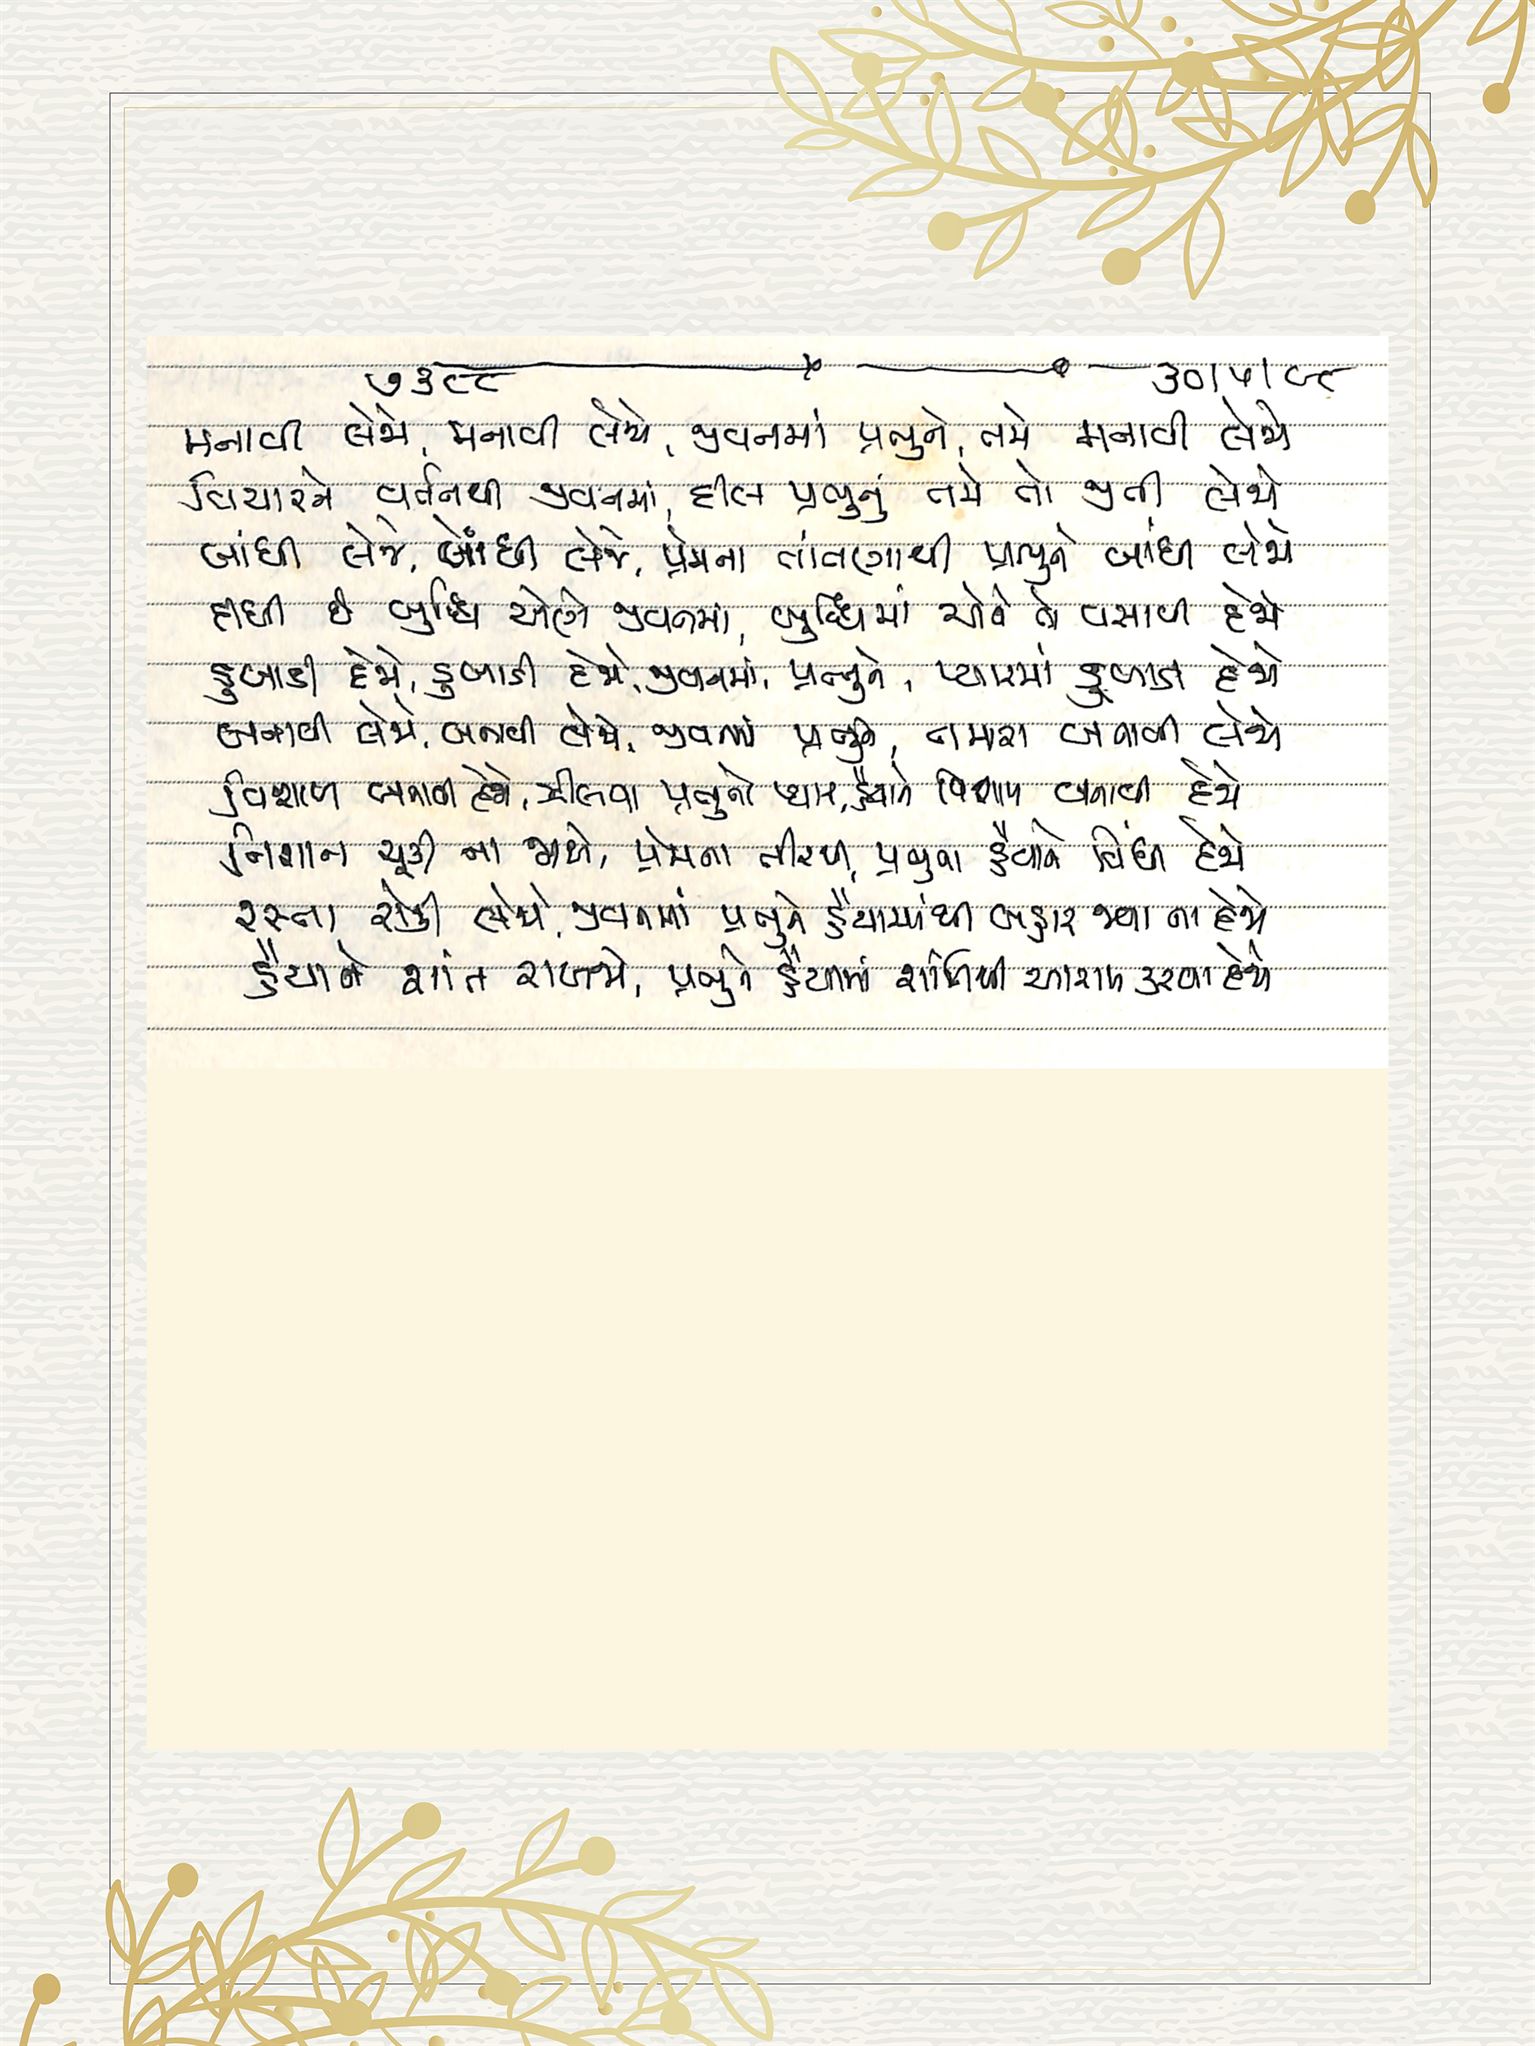 ૭૩૯૯ ૩૦/૫/૯૯
મનાવી લેજો, મનાવી લેજો, જીવનમાં પ્રભુને, તમે મનાવી લેજો
વિચારને વર્તનથી જીવનમાં, દીલ પ્રભુનું તમે તો જીતી લેજો
બાંધી લેજે, બાંધી લેજે, પ્રેમના તાંતણાથી પ્રભુને બાંધી લેજો
દીધી છે બુદ્ધિ એણે જીવનમાં, બુદ્ધિમાં એને તો વસાવી દેજો
ડુબાડી દેજો, ડુબાડી દેજો, જીવનમાં, પ્રભુને, પ્યારમાં ડુબાડી દેજો
બનાવી લેજો, બનાવી લેજો, જીવનમાં પ્રભુને, તમારા બનાવી લેજો
વિશાળ બનાવી દેજો, ઝીલવા પ્રભુનો પ્યાર, હૈયાને વિશાળ બનાવી દેજો
નિશાન ચૂકી ના જાજો, પ્રેમના તીરથી, પ્રભુના હૈયાને વિંધી દેજો
રસ્તા રોકી લેજો, જીવનમાં પ્રભુને હૈયામાંથી બહાર જાવા ના દેજો
હૈયાને શાંત રાખજો, પ્રભુને હૈયામાં શાંતિથી આરામ કરવા દેજો